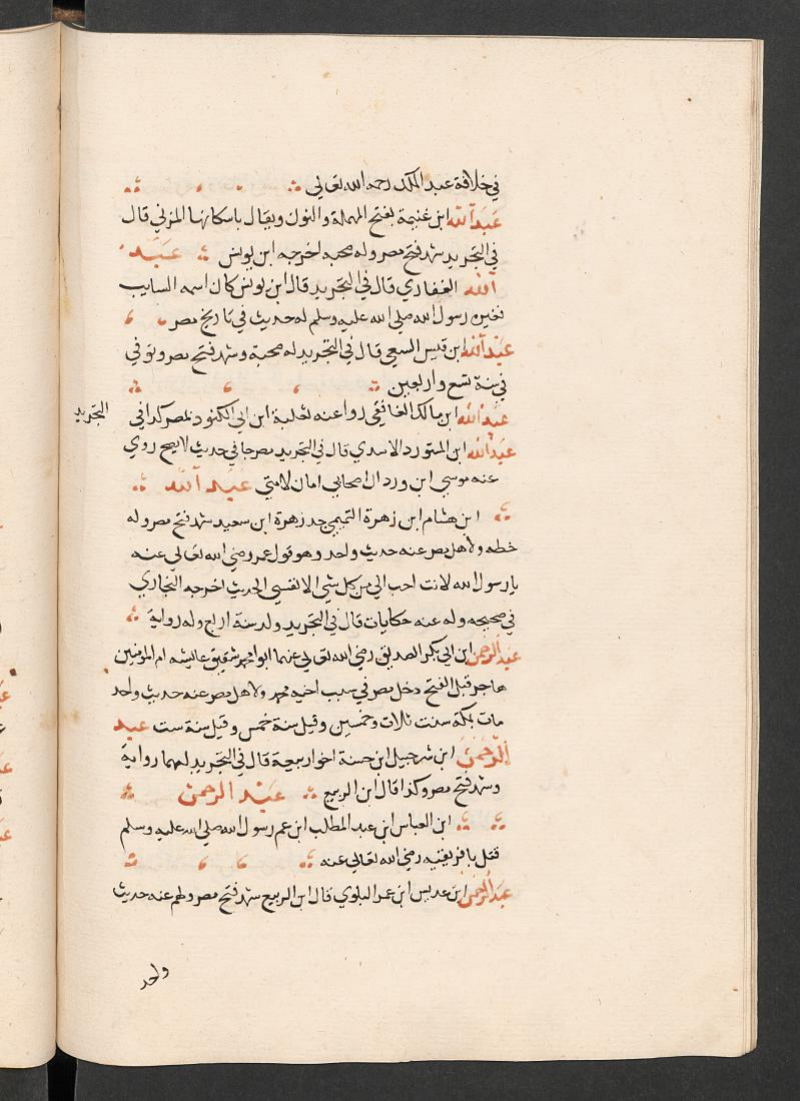 في خلافة عبد الملك رحمه الله تعالى
عبد الله ابن غنيمة بفتح المهملة والنون ويقال باسكانها المزني قال
في التجريد شهد فتح مصر وله صحبه اخرجه ابن يونس عبد
الله الغفاري قال في التجريد قال ابن يونس كان اسمه السايب
فغيره رسول الله صلى الله عليه وسلم له حديث في تاريخ مصر
عبد الله ابن قيس قال في التجريد له صحبة وشهد فتح مصر وتوفي
في سنة تسع واربعين
عبد الله ابن مالك الغافقي روا عنه ثعلبة ابن ابي الكنود بمصر كذا في
التجريد
عبد الله ابن المتورد الاسدي قال في التجريد مصر جا في حديث لا يصح روي
عنه موسى ابن وردان اصحابي امان لامتي عبد الله
ابن هشام ابن زهرة التميمي جد زهرة ابن سعيد شهد فتح مصر وله
خطه ولاهل مصر عنه حديث واحد وهو قول عمر رضي الله تعالى عنه
يا رسول الله لانت احب الي من كل شي الا نفسي الحديث اخرجه البخاري
في صحيحه وله عنه حكايات قال في التجريد ولد سنة اربع وله رواية
عبد الرحمن ابن ابي بكر الصديق رضي الله تعالى عنهما ابو محمد شقيق عايشه ام المؤمنين
هاجر قبل الفتح دخل مصر في سبب اخيه محمد ولاهل مصر عنه حديث واحد
مات بمكة سنت ثلاث وخمسين وقيل سنة خمس وقيل سنة ست عبد
الرحمن ابن شرحبيل ابن حسنة اخو ربيعة قال في التجريد لهما رواية
وشهد فتح مصر وكذا قال ابن الربيع عبد الرحمن
ابن العباس ابن عبد المطلب ابن عم رسول الله صلى الله عليه وسلم
قتل بافريقيه رضي الله تعالى عنه
عبد الرحمن ابن عديس ابن عمر البلوي قال ابن الربيع شهد فتح مصر ولهم عنه حديث
واحد